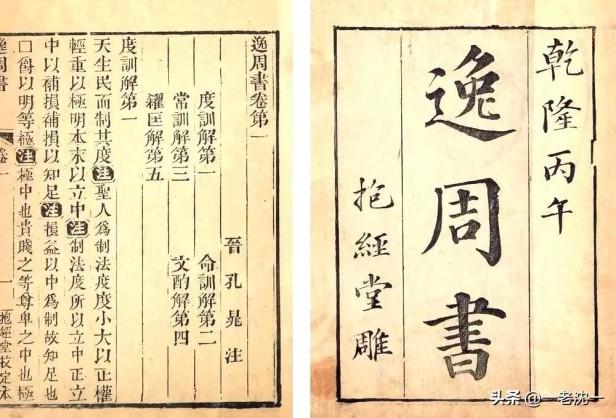 乾隆丙午
逸周書
抱經堂雕
逸周書卷第一
晉孔晁注
度訓解第一 命訓解第二
常訓解第三 文酌解第四
糴匡解第五
度訓解第一
天生民而制其度注聖人爲制法度度小大以正權
輕重以極明本末以立中注制法度所以立中正立
中以補損補損以知足注損益以中爲制故知足也
□爵以明等極注極中也貴賤之等尊卑之中也極
逸周書 卷一 一 抱經堂校定本
头条 @一老沈一